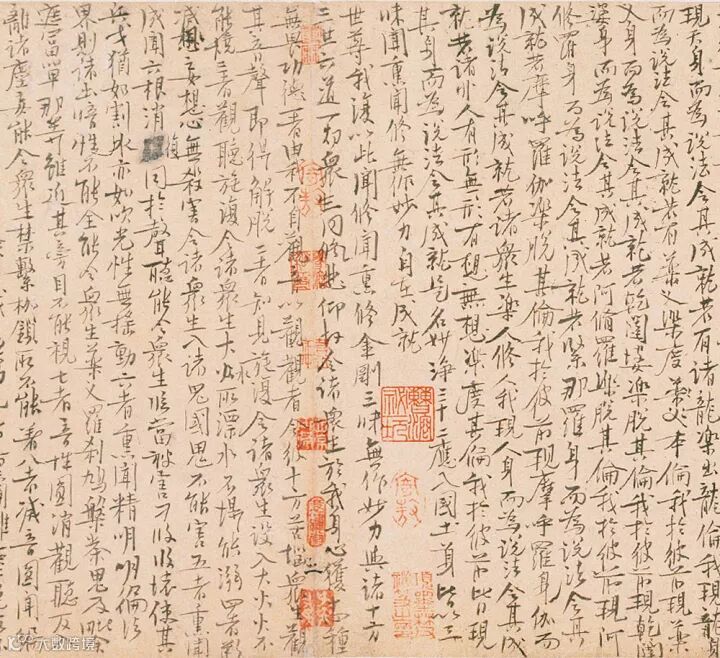 現天身而為說法令其成就若有諸龍樂出龍倫我現龍身
而為說法令其成就若有藥叉樂度本倫我於彼前現藥
叉身而為說法令其成就若乾闥婆樂脫其倫我於彼前現乾闥
婆身而為說法令其成就若阿脩羅樂脫其倫我於彼前現阿
脩羅身而為說法令其成就若緊那羅身而為說法令其
成就若摩呼羅伽樂脫其倫我於彼前現摩呼羅身伽而
為說法令其成就若諸眾生樂人修人我現人身而為說法令其成
就若諸非人有形無形有想無想樂度其倫我於彼前皆現
其身而為說法令其成就是名妙淨三十二應入國土身皆以三
昧聞熏聞修無作妙力自在成就
世尊我復以此聞修聞熏修金剛三昧無作妙力與諸十方
三世六道一切眾生同悲仰故令諸眾生於我身心獲十四種
無畏功德一者由我不自觀音以觀觀者令彼十方苦惱眾生觀
其音聲即得解脫二者知見旋復令諸眾生設入大火火不
能燒三者觀聽旋復令諸眾生大水所漂水不能溺四者斷
滅妄想心無殺害令諸眾生入諸鬼國鬼不能害五者熏聞
成聞六根消復同於聲聽能令眾生臨當被害刀段段壞使其
兵戈猶如割水亦如吹光性無搖動六者熏聞精明明倫法
界則諸幽暗性不能全能令眾生藥叉羅剎鳩槃茶鬼及毗舍
遮富單那等雖近其旁目不能視七者音性圓消觀聽反
離諸塵妄能令眾生禁繫枷鎖所不能著八者滅音圓聞
大数跨境